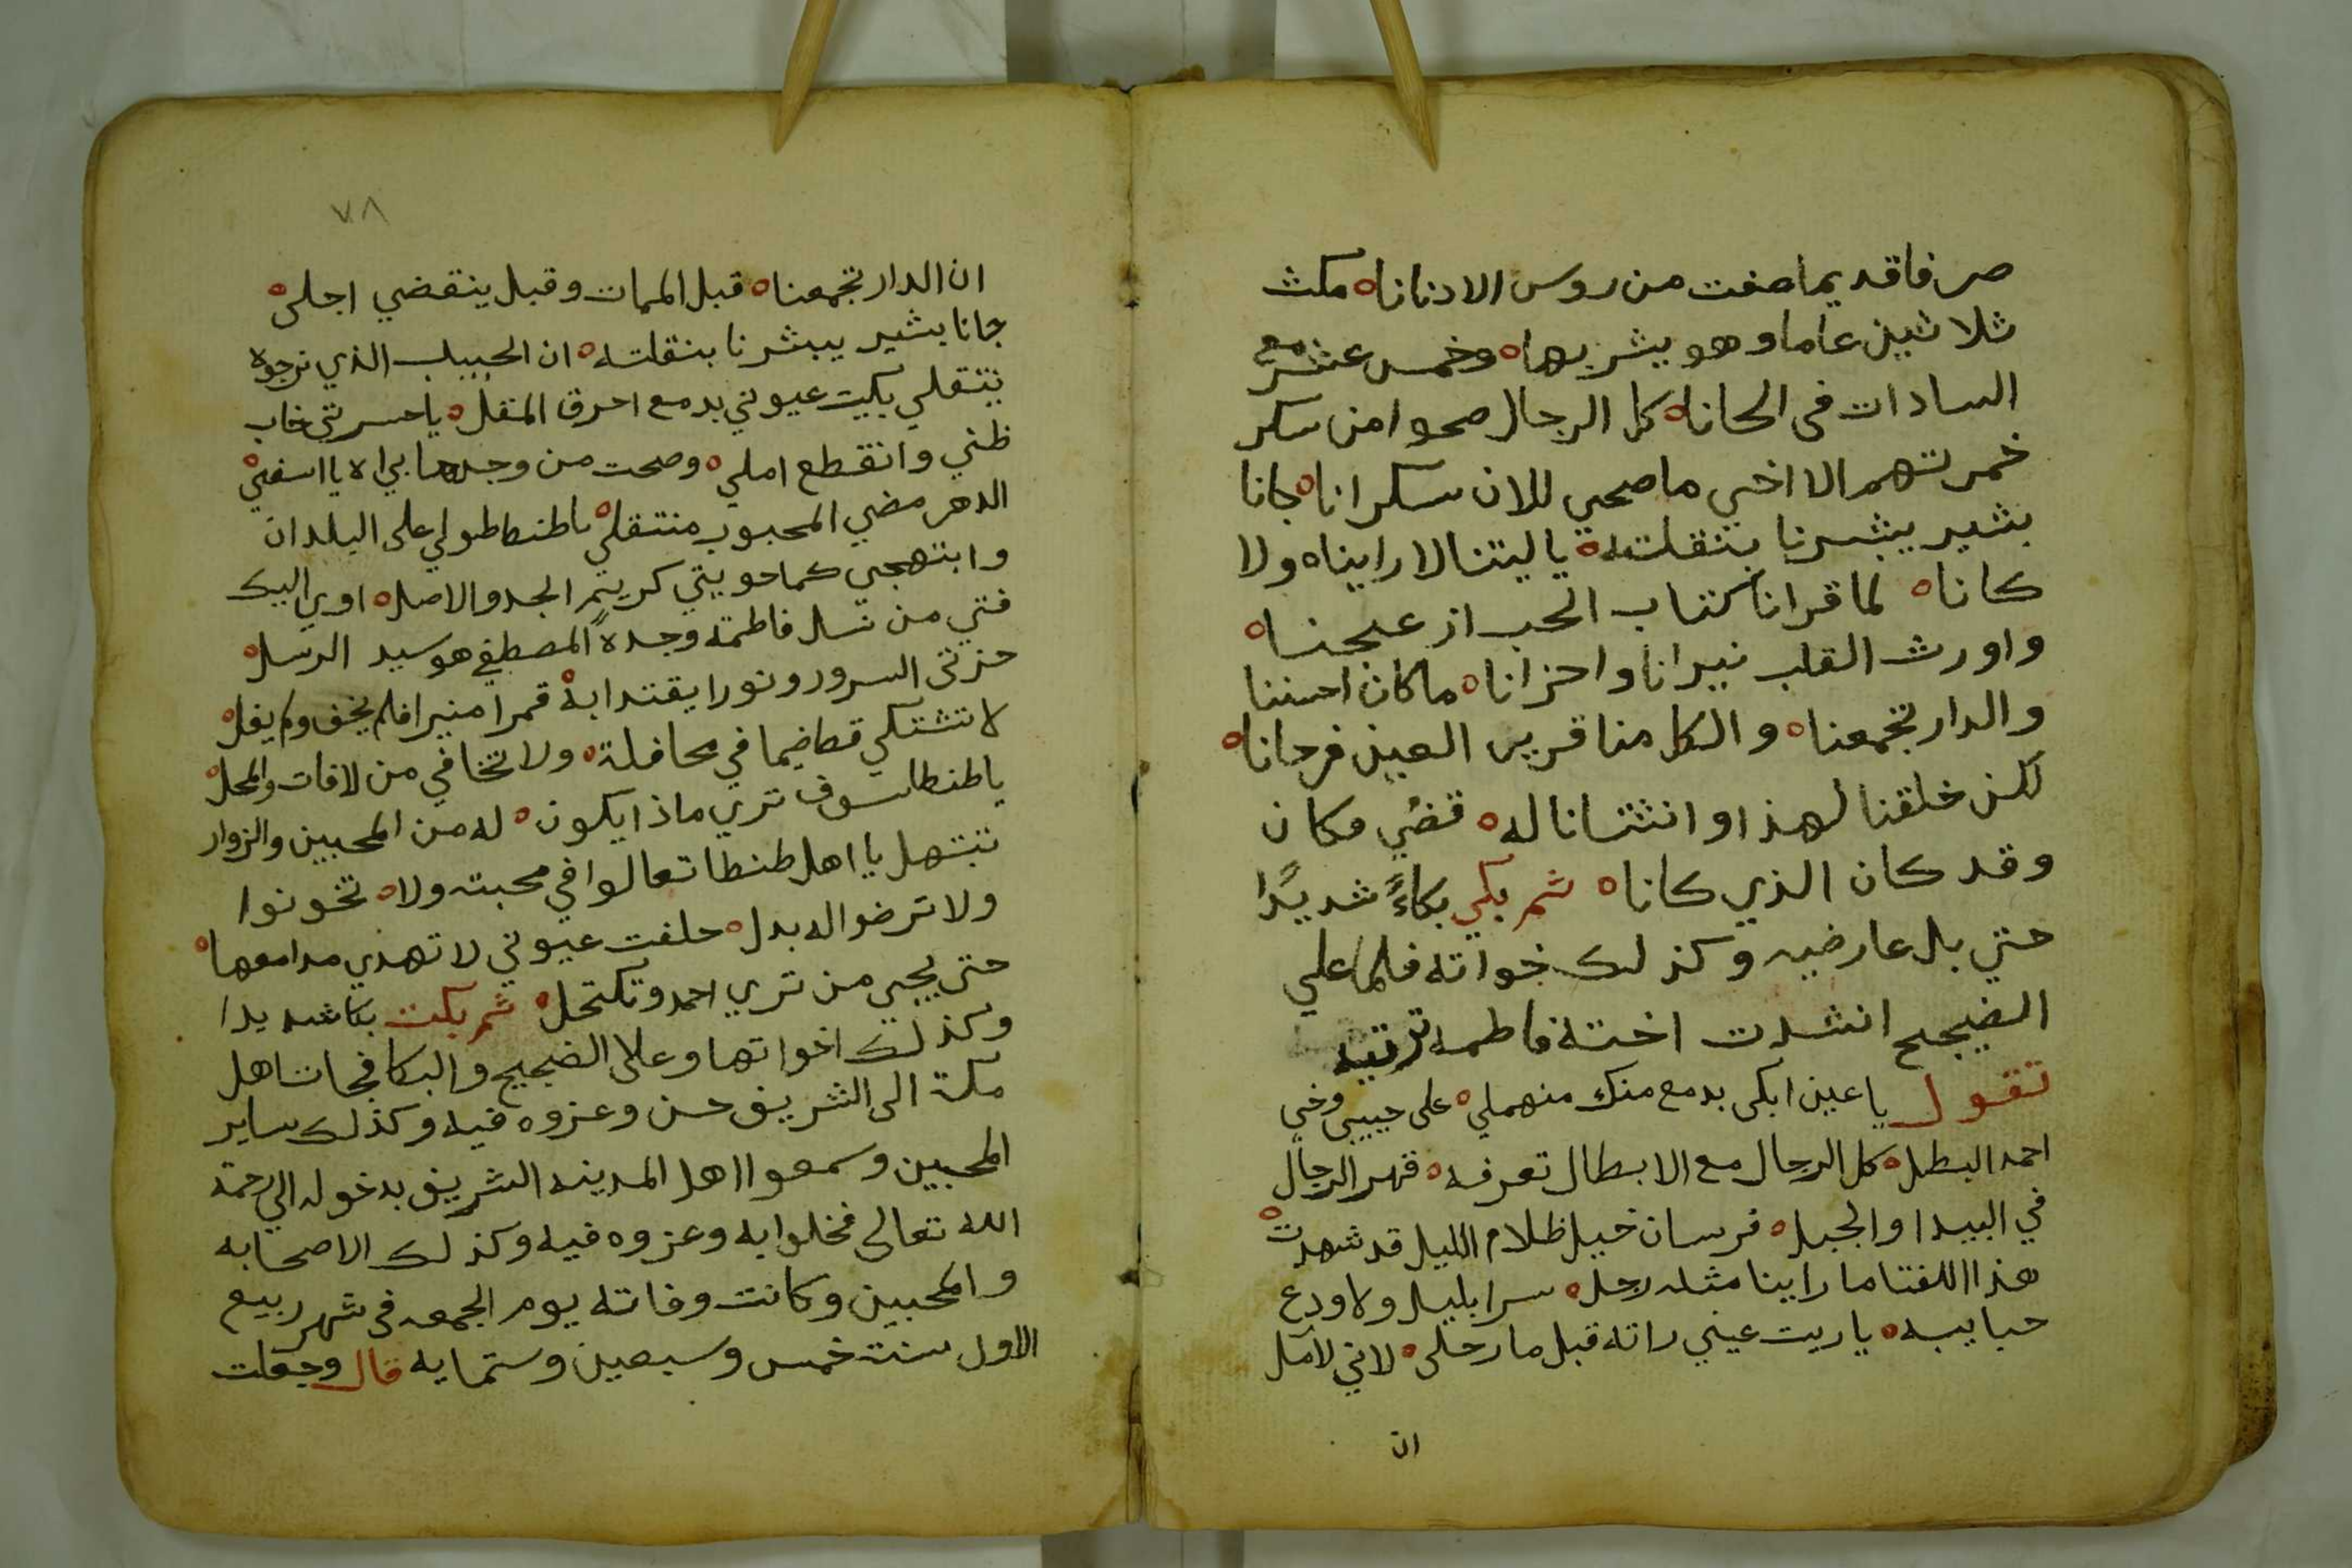 صرفا قديما صفت من روس الادنانا ه مكث
ثلاثين عاما وهو يشربها ه وخمس عشر مع
السادات في الحانا ه كل الرجال صحوا من سكر
خمرتهم الا اخي ما صحي للان سكرانا ه جانا
بشير يبشرنا بنقلته ه ياليتنا لا رايناه ولا
كانا ه لما قرانا كتاب الحب ازعجنا ه
واورث القلب نيرانا واحزانا ه ما كان احسننا
والدار تجمعنا ه والكل منا قرير العين فرحانا ه
لكن خلقنا لهذا وانتشانا له ه قضي مكان
وقد كان الذي كانا ه ثم بكي بكاءً شديدًا
حتي بل عارضيه وكذلك خواته فلما علي
الضجيج انشدت اخته فاطمه ترتيه
تقول يا عين ابكى بدمع منك منهملي ه على حبيبي وخي
احمد البطل ه كل الرجال مع الابطال تعرفه ه قهر الرجال
في البيدا والجبل ه فرسان خيل ظلام الليل قد شهدت ه
هذا اللفتا ما راينا مثله رجل ه سرا بليل ولا ودع
حبايبه ه ياريت عيني راته قبل ما رحلى ه لاني لآمل
ان
٧٨
ان الدار تجمعنا ه قبل الممات وقبل ينقضي اجلى ه
جانا بشير يبشرنا بنقلته ه ان الحبيب الذي نرجوه
ينتقلي بكيت عيوني بدمع احرق المقل ه يا حسرتي خاب
ظني وانقطع املي ه وصحت من وجدها بي اه يا اسفي ه
الدهر مضي المحبوب منتقلي ه ياطنطا طولي على البلدان
وابتهجي كما حويتي كريم الجد والاصل ه اوي اليك
فتي من نسل فاطمة وجده المصطفي هو سيد الرسل ه
حزتى السرور ونورا يقتدا به ه قمرا منيرا فلم يخف ولم يفل ه
لا تشتكي قط ضيما في محافلة ه ولا تخافي من لافات والمحل ه
ياطنطا سوف تري ماذا يكون ه له من المحبين والزوار
تبتهل يا اهل طنطا تعالوا في محبته ولا ه تخونوا
ولا ترضوا له بدل ه حلفت عيوني لا تهدي مدامعها ه
حتى يجي من تري احمد وتكتحل ه ثم بكت بكا شديدا
وكذلك اخواتها وعلا الضجيج والبكا فجات اهل
مكة الى الشريف حسن وعزوه فيه وكذلك ساير
المحبين وسمعوا اهل المدينه الشريف بدخوله الي رحمة
الله تعالي فخلوا به وعزوه فيه وكذلك الاصحابه
والمحبين وكانت وفاته يوم الجمعه في شهر ربيع
الاول سنت خمس وسبعين وستمايه قال وجعلت